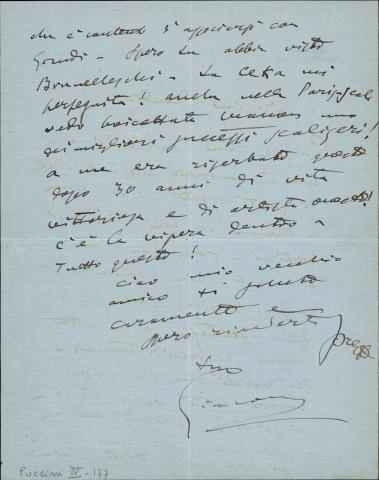 che è contento d'associarsi con
Grandi - Spero tu abbia visto
Brunelleschi - La Cetra mi
perseguita! anche nella Parigi
vedo boicottata uno
dei migliori successi scaligeri!
a me era riserbato questo
dopo 30 anni di vita
vittoriosa e di artista onesto!
c'è la vipera dentro a
tutto questo!
ciao mio vecchio
amico ti saluto
caramente e
spero rivederti presto
tuo
Giacomo
Puccini IV - 177